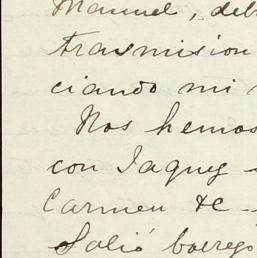 Manuel, deb
trasmision
ciando mi
Nos hemos
con Jaquez
Carmen &c -
Salió borrego